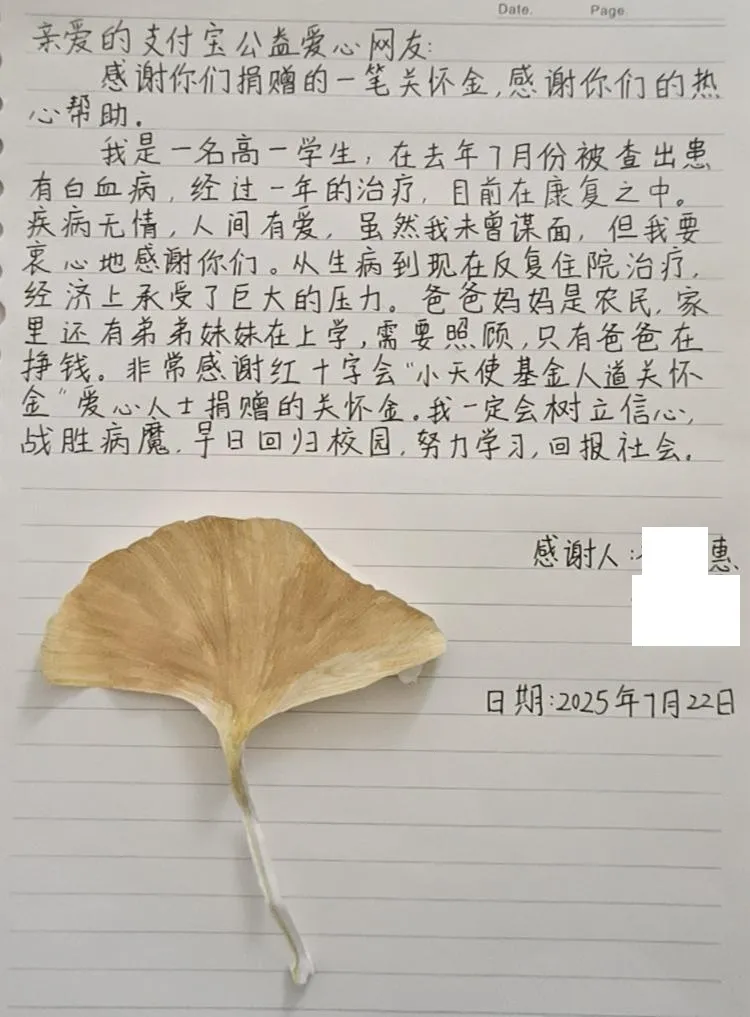 Date. Page.
亲爱的支付宝公益爱心网友:
感谢你们捐赠的一笔关怀金,感谢你们的热
心帮助.
我是一名高一学生,在去年7月份被查出患
有白血病,经过一年的治疗,目前在康复之中。
疾病无情,人间有爱,虽然我未曾谋面,但我要
衷心地感谢你们。从生病到现在反复住院治疗,
经济上承受了巨大的压力。爸爸妈妈是农民,家
里还有弟弟妹妹在上学,需要照顾,只有爸爸在
挣钱。非常感谢红十字会“小天使基金人道关怀
金”爱心人士捐赠的关怀金.我一定会树立信心,
战胜病魔,早日回归校园,努力学习,回报社会.
感谢人: 惠
日期:2025年7月22日